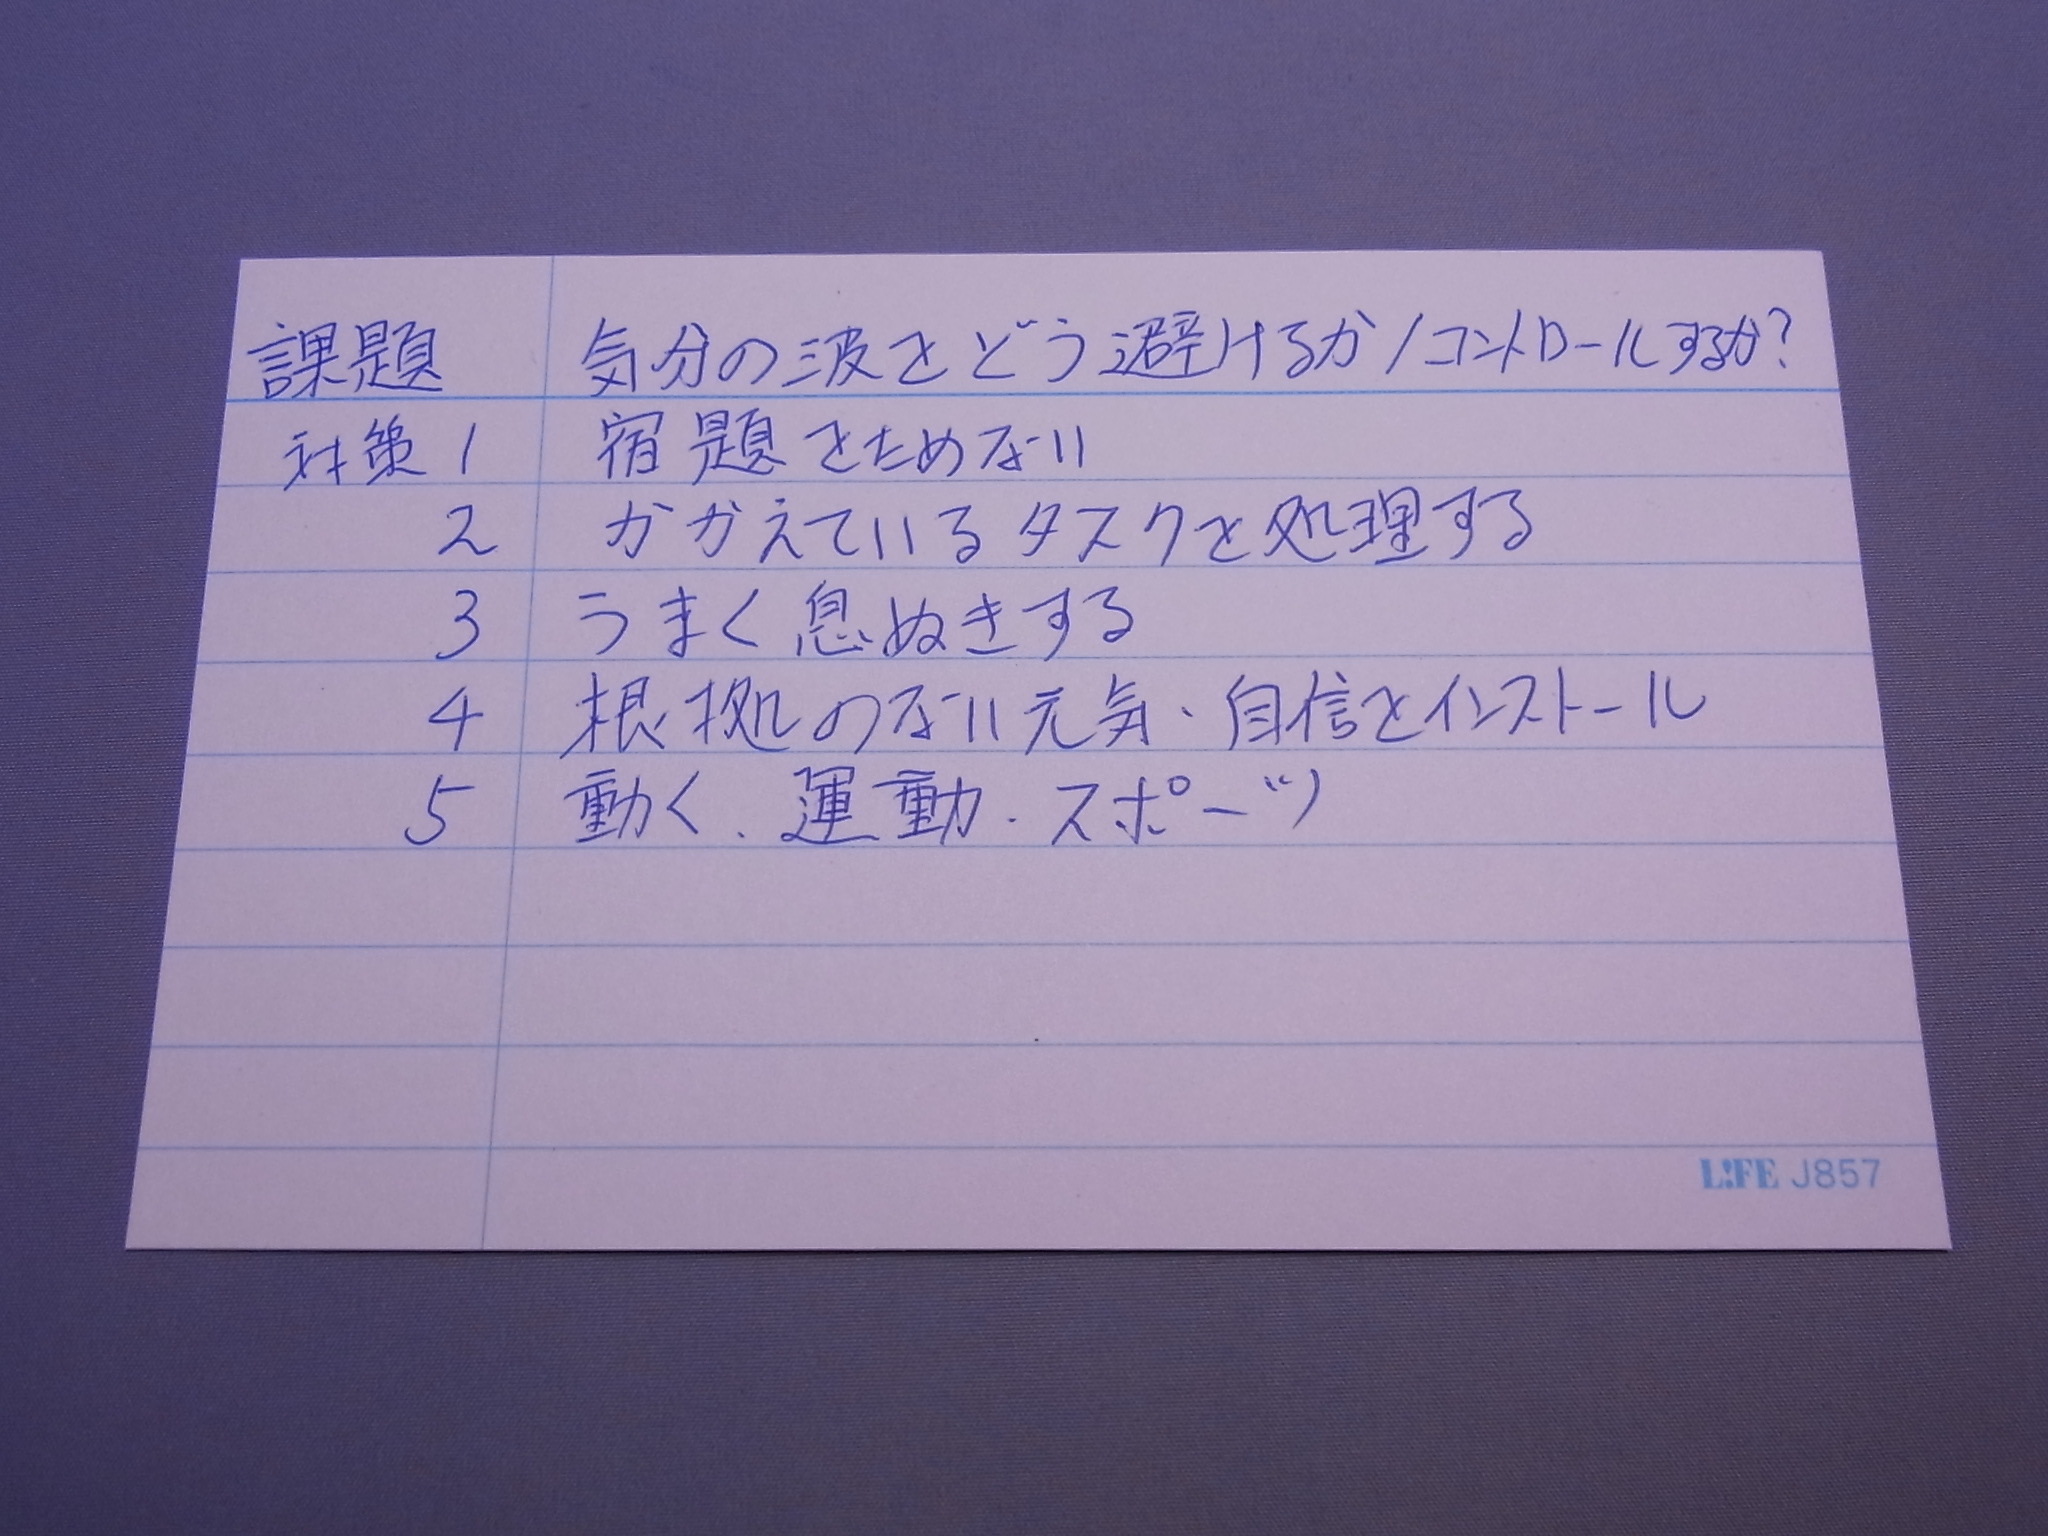 課題 気分の波をどう避けるか/コントロールするか?
対策1 宿題をためない
2 かかえているタスクを処理する
3 うまく息ぬきする
4 根拠のない元気・自信をインストール
5 動く、運動・スポーツ
L!FE J857